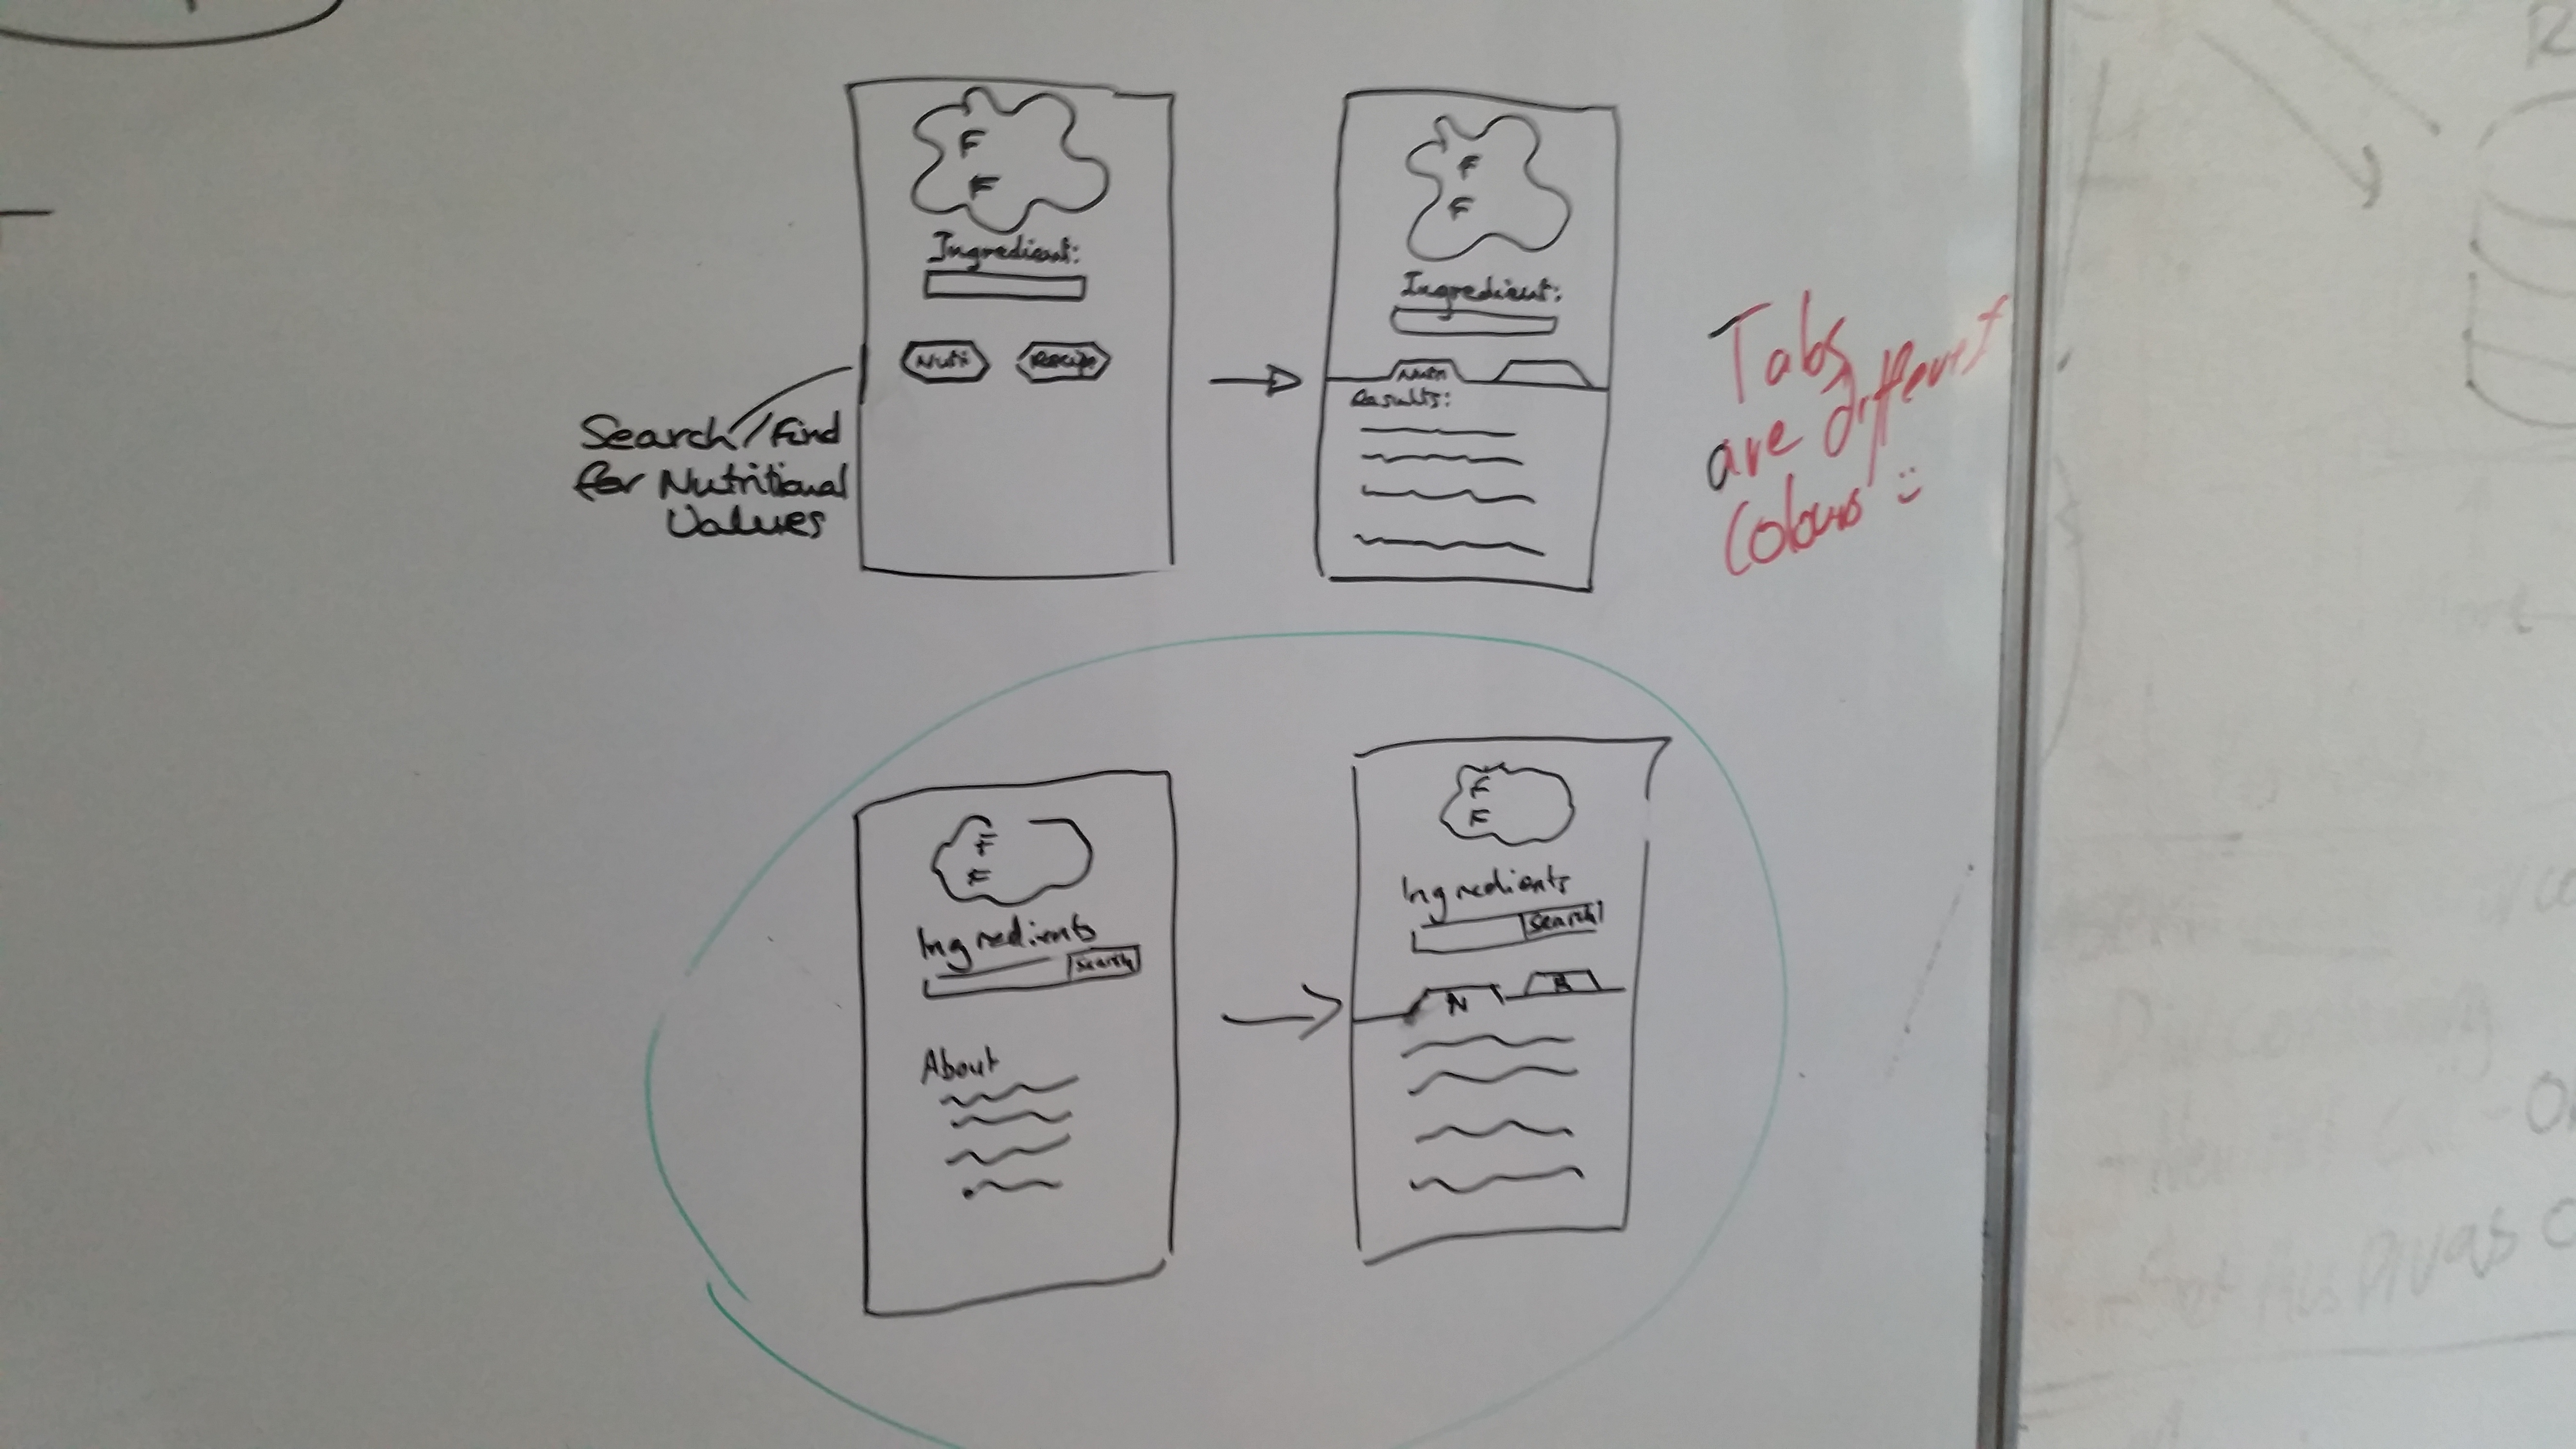 F
F
Ingredient:
Nutri
Recipe
Search/Find
for Nutritional
Values
F
F
Ingredient:
Nutri
Results:
Tabs
are different
Colours :)
F
F
Ingredients
Search
About
F
F
Ingredients
Search
N
R